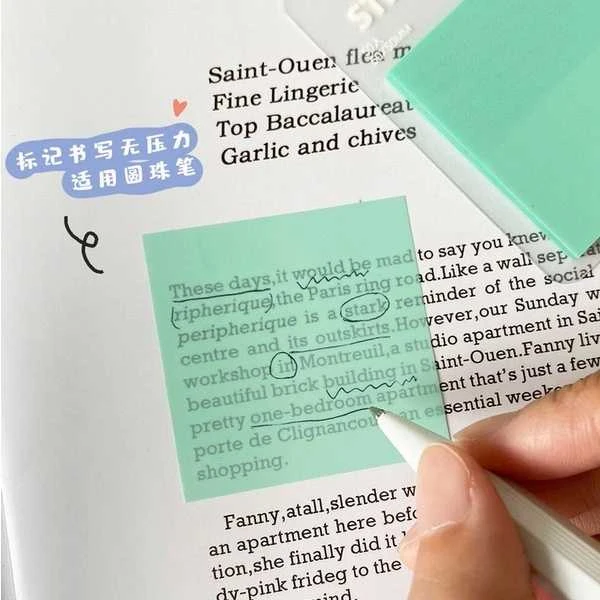 Saint-Ouen flea m
Fine Lingerie
Top Baccalaureat
Garlic and chives
标记书写无压力
适用圆珠笔
These days,it would be mad to say you knew
ripherique,the Paris ring road.Like a wall sep
peripherique is a stark reminder of the social
centre and its outskirts.However,our Sunday w
workshop in Montreuil,a studio apartment in Sai
beautiful brick building in Saint-Ouen.Fanny liv
pretty one-bedroom apartment that's just a few
porte de Clignancou an essential weeke
shopping.
Fanny,atall,slender w
an apartment here befo
tion,she finally did it
dy-pink frideg to the
mind.